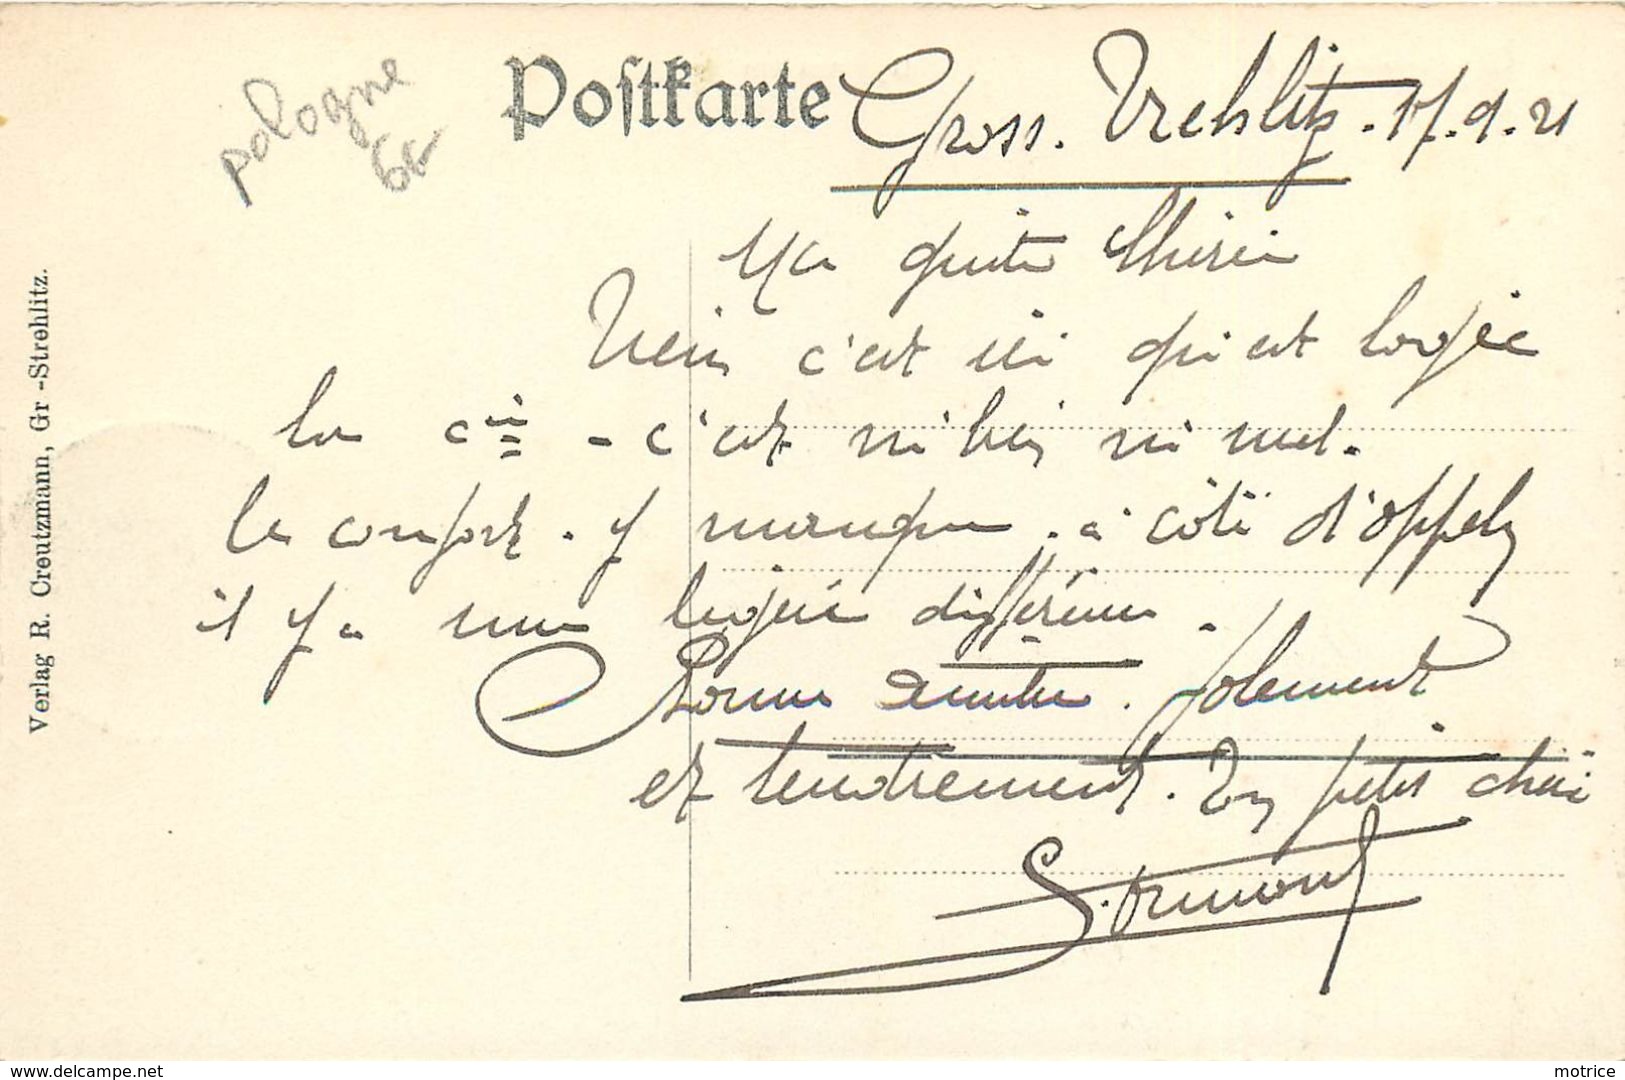 pologne
6€
Postkarte
Gross. Strehlitz. 17.9.21
Ma petite Chérie
Viens c'est ici qui est logée
la cie - c'est ni bien ni mal.
le confort. y manque. à côté d'oppeln
il y a une légère différence.
Bonne amitié. follement
et tendrement. Ton petit chéri
Verlag R. Creutzmann, Gr -Strehlitz.
www.delcampe.net
motrice